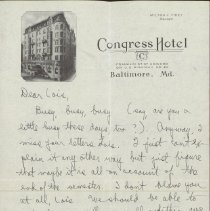 Congress Hotel
C
Baltimore, Md.
Dear Lois,
Busy, busy, busy (say are you a
little busy these days too?). Anyway, I
miss your letters days. I just can't ex-
plain it any other way but just figure
that maybe it's all on account of the
end of the semester. I don't blame you
at all, Lois. We should be able to